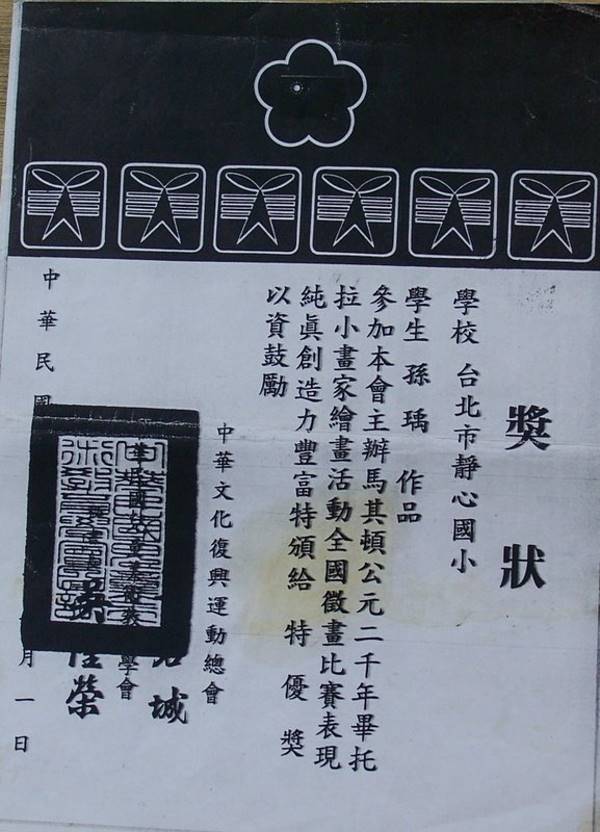 獎狀
學校 台北市靜心國小
學生 孫瑀 作品
參加本會主辦馬其頓公元二千年畢托
拉小畫家繪畫活動全國徵畫比賽表現
純真創造力豐富特頒給 特優獎
以資鼓勵
中華文化復興運動總會
城
學會
榮
中華民國
月一日